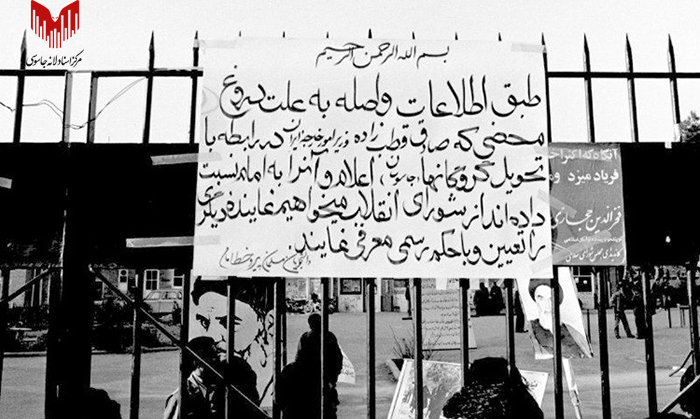 مرکز اسناد لانه جاسوسی
بسم الله الرحمن الرحیم
طبق اطلاعات واصله به علت دروغ
محضی که صادق قطب زاده وزیر امور خارجه ایران در رابطه با
تحویل گروگانها، جاسوسان، اعلام و آنرا به امام نسبت
داده اند از شورای انقلاب میخواهیم نماینده دیگری
را تعیین و با حکم رسمی معرفی نمایند
دانشجویان مسلمان پیرو خط امام
آنگاه که الله اکبر
فریاد میزد و
فخرالدین حجازی